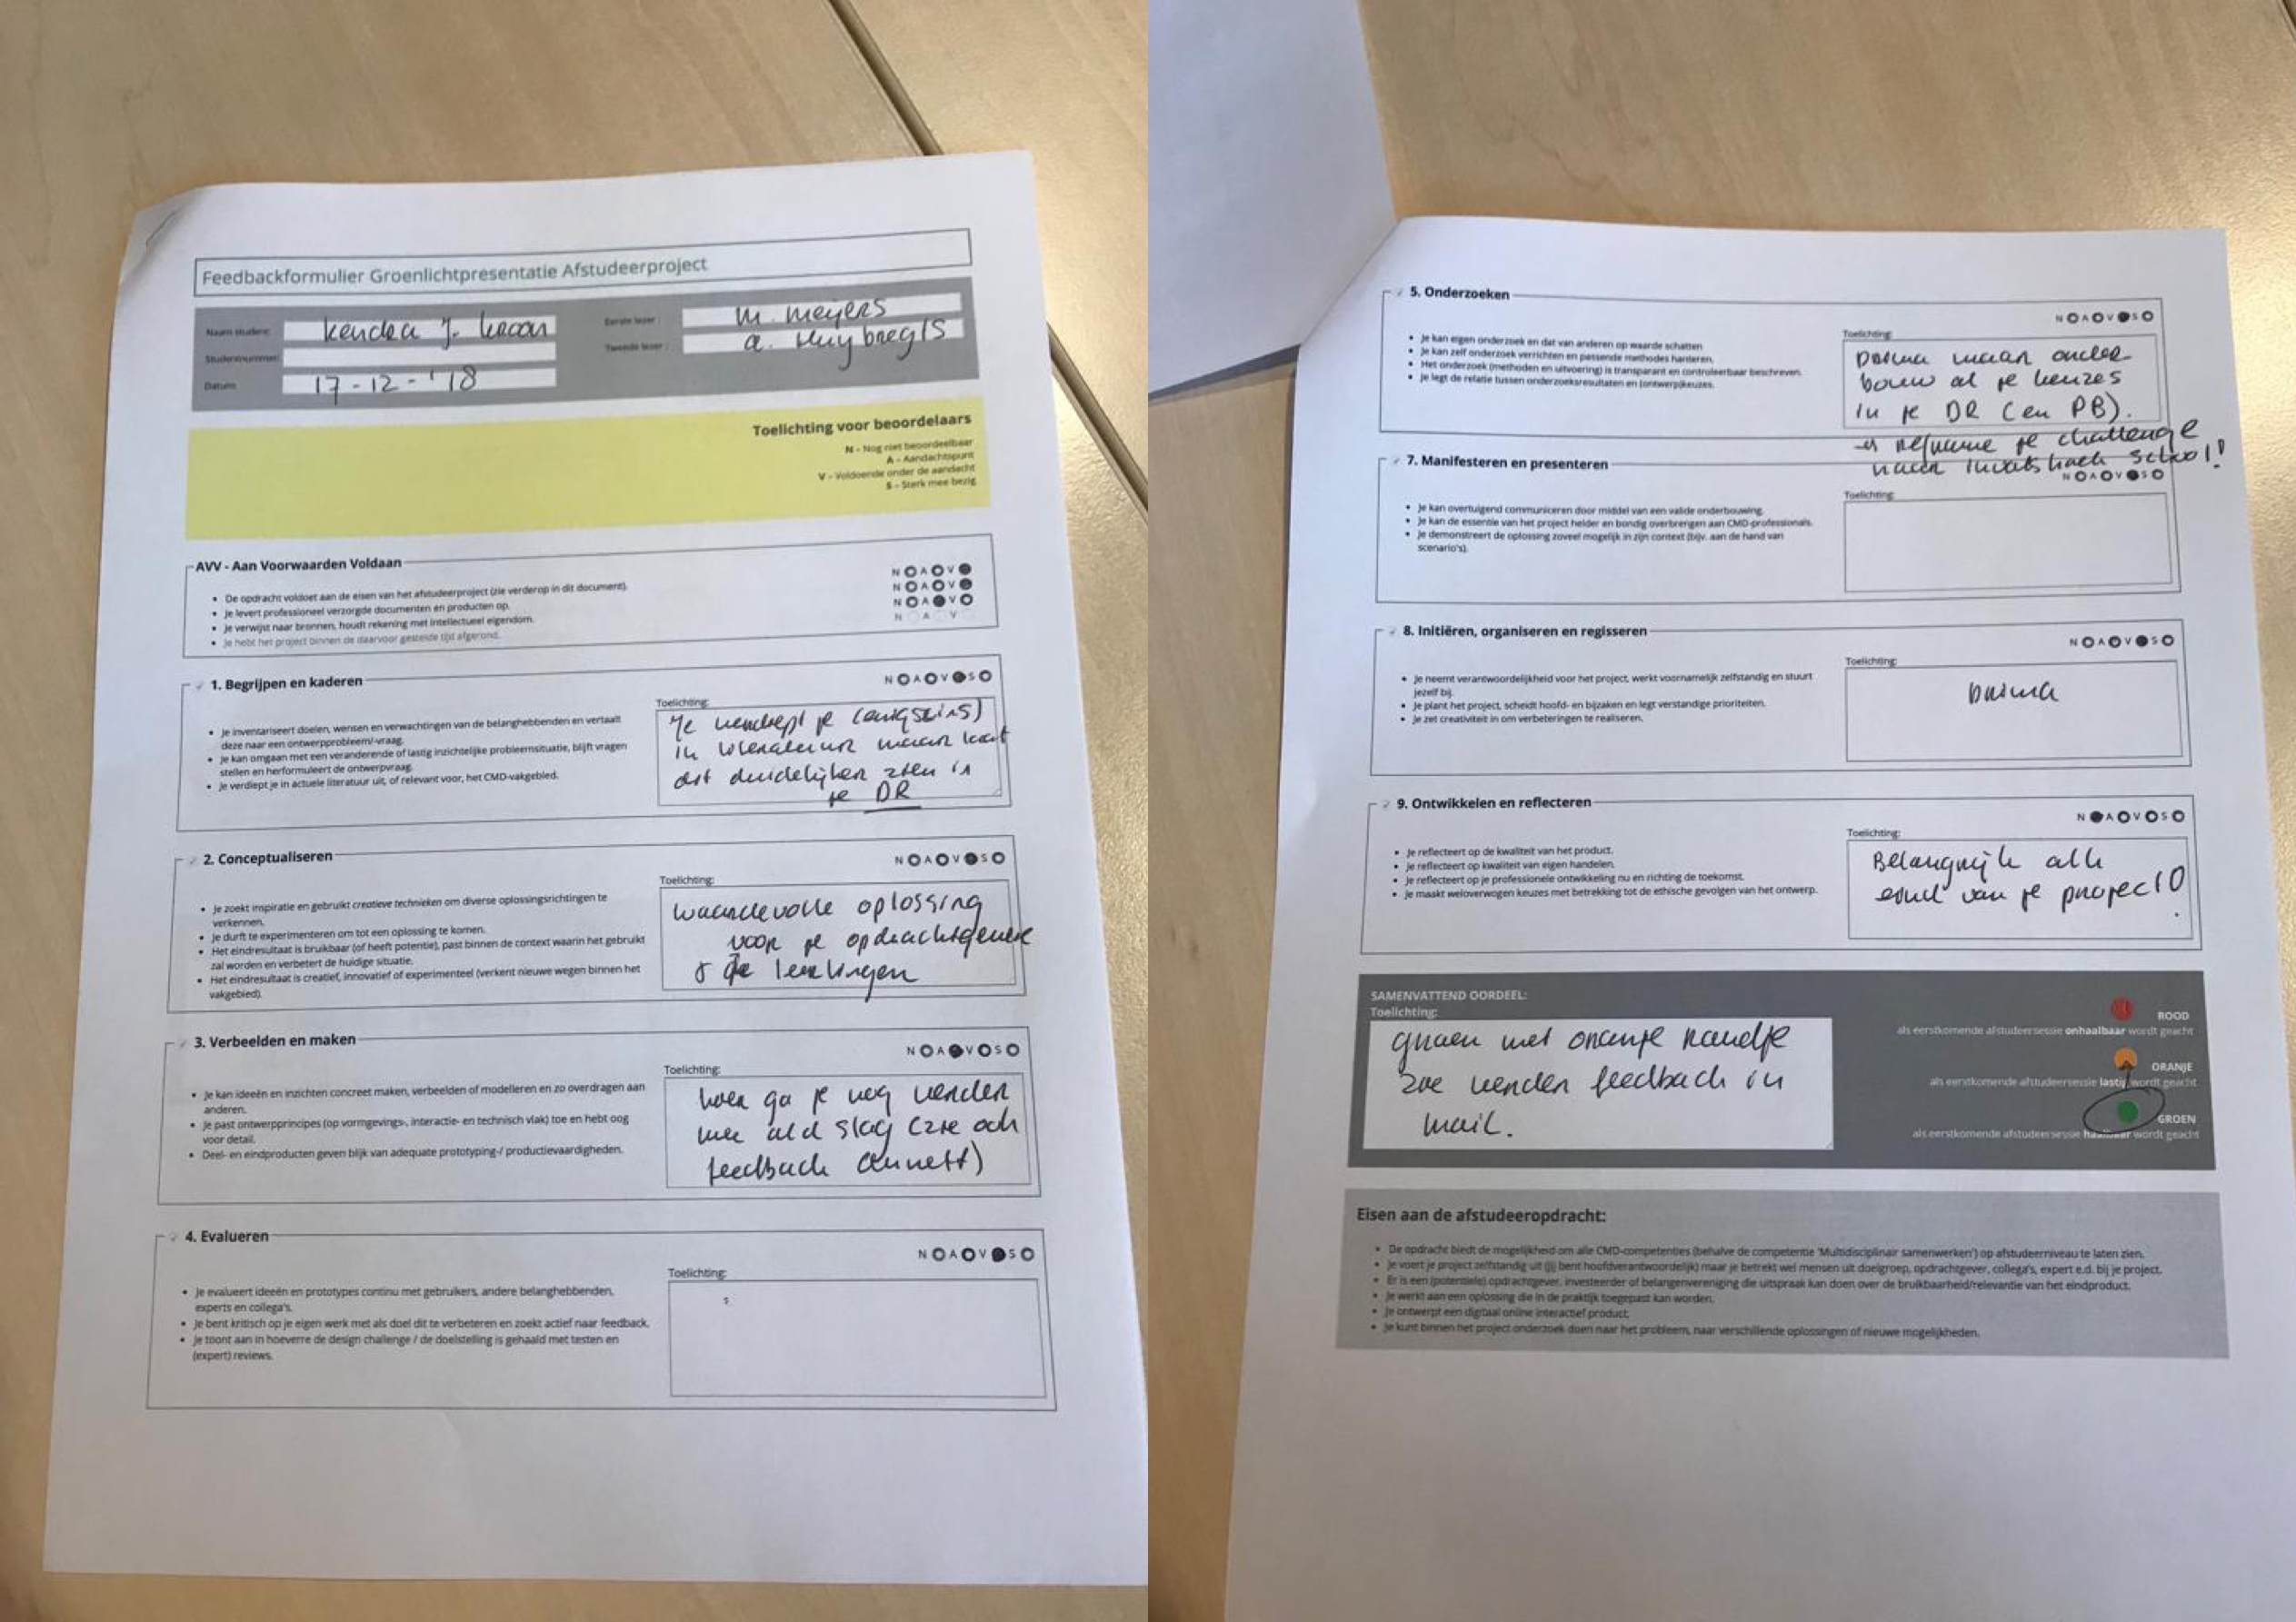 Feedbackformulier Groenlichtpresentatie Afstudeerproject
Naam student:
Eerste lezer :
M. Meijers
Studentnummer:
Tweede lezer :
Datum:
17-12-'18
Toelichting voor beoordelaars
N - Nog niet beoordeelbaar
A - Aandachtspunt
V - Voldoende onder de aandacht
S - Sterk mee bezig
AVV - Aan Voorwaarden Voldaan
De opdracht voldoet aan de eisen van het afstudeerproject (zie verderop in dit document).
N A V
Je levert professioneel verzorgde documenten en producten op.
N A V
Je verwijst naar bronnen, houdt rekening met intellectueel eigendom.
N A V
Je hebt het project binnen de daarvoor gestelde tijd afgerond.
N A V
1. Begrijpen en kaderen
N A V S
Je inventariseert doelen, wensen en verwachtingen van de belanghebbenden en vertaalt
deze naar een ontwerpprobleem/-vraag.
Je kan omgaan met een veranderende of lastig inzichtelijke probleemsituatie, blijft vragen
stellen en herformuleert de ontwerpvraag.
Je verdiept je in actuele literatuur uit, of relevant voor, het CMD-vakgebied.
Toelichting:
Je verdiept je (enigszins)
in literatuur maar laat
dit duidelijker zien in
je DR
2. Conceptualiseren
N A V S
Je zoekt inspiratie en gebruikt creatieve technieken om diverse oplossingsrichtingen te
verkennen.
Je durft te experimenteren om tot een oplossing te komen.
Het eindresultaat is bruikbaar (of heeft potentie), past binnen de context waarin het gebruikt
zal worden en verbetert de huidige situatie.
Het eindresultaat is creatief, innovatief of experimenteel (verkent nieuwe wegen binnen het
vakgebied).
Toelichting:
waardevolle oplossing
voor je opdrachtgever
& de leerlingen
3. Verbeelden en maken
N A V S
Je kan ideeën en inzichten concreet maken, verbeelden of modelleren en zo overdragen aan
anderen.
Je past ontwerpprincipes (op vormgevings-, interactie- en technisch vlak) toe en hebt oog
voor detail.
Deel- en eindproducten geven blijk van adequate prototyping-/ productievaardigheden.
Toelichting:
hier ga je nog verder
mee aan d slag (zie ook
feedback
4. Evalueren
N A V S
Je evalueert ideeën en prototypes continu met gebruikers, andere belanghebbenden,
experts en collega's.
Je bent kritisch op je eigen werk met als doel dit te verbeteren en zoekt actief naar feedback.
Je toont aan in hoeverre de design challenge / de doelstelling is gehaald met testen en
(expert) reviews.
Toelichting:
5. Onderzoeken
N A V S
Je kan eigen onderzoek en dat van anderen op waarde schatten
Je kan zelf onderzoek verrichten en passende methodes hanteren.
Het onderzoek (methoden en uitvoering) is transparant en controleerbaar beschreven.
Je legt de relatie tussen onderzoeksresultaten en (ontwerp)keuzes.
Toelichting:
prima maar onder-
bouw al je keuzes
in je DR (en PB).
je challenge
naar school!
7. Manifesteren en presenteren
N A V S
Je kan overtuigend communiceren door middel van een valide onderbouwing.
Je kan de essentie van het project helder en bondig overbrengen aan CMD-professionals.
Je demonstreert de oplossing zoveel mogelijk in zijn context (bijv. aan de hand van
scenario's).
Toelichting:
8. Initiëren, organiseren en regisseren
N A V S
Je neemt verantwoordelijkheid voor het project, werkt voornamelijk zelfstandig en stuurt
jezelf bij.
Je plant het project, scheidt hoofd- en bijzaken en legt verstandige prioriteiten.
Je zet creativiteit in om verbeteringen te realiseren.
Toelichting:
prima
9. Ontwikkelen en reflecteren
N A V S
Je reflecteert op de kwaliteit van het product.
Je reflecteert op kwaliteit van eigen handelen.
Je reflecteert op je professionele ontwikkeling nu en richting de toekomst.
Je maakt weloverwogen keuzes met betrekking tot de ethische gevolgen van het ontwerp.
Toelichting:
Belangrijk
eind van je project
SAMENVATTEND OORDEEL:
Toelichting:
groen met oranje randje
zie verder feedback in
mail.
ROOD
als eerstkomende afstudeersessie onhaalbaar wordt geacht
ORANJE
als eerstkomende afstudeersessie lastig wordt geacht
GROEN
als eerstkomende afstudeersessie haalbaar wordt geacht
Eisen aan de afstudeeropdracht:
De opdracht biedt de mogelijkheid om alle CMD-competenties (behalve de competentie 'Multidisciplinair samenwerken') op afstudeerniveau te laten zien.
Je voert je project zelfstandig uit (jij bent hoofdverantwoordelijk) maar je betrekt wel mensen uit doelgroep, opdrachtgever, collega's, expert e.d. bij je project.
Er is een (potentiële) opdrachtgever, investeerder of belangenvereniging die uitspraak kan doen over de bruikbaarheid/relevantie van het eindproduct.
Je werkt aan een oplossing die in de praktijk toegepast kan worden.
Je ontwerpt een digitaal online interactief product.
Je kunt binnen het project onderzoek doen naar het probleem, naar verschillende oplossingen of nieuwe mogelijkheden.